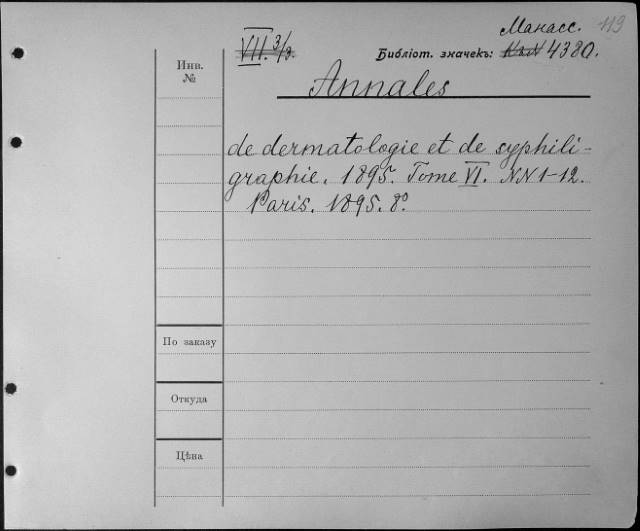 Манасс. 119
VII. 3/3.
Библіот. значекъ: 4380.
Инв.
№
Annales
de dermatologie et de syphili-
graphie. 1895. Tome VI. NN 1-12.
Paris. 1895. 8°
По заказу
Откуда
Цѣна